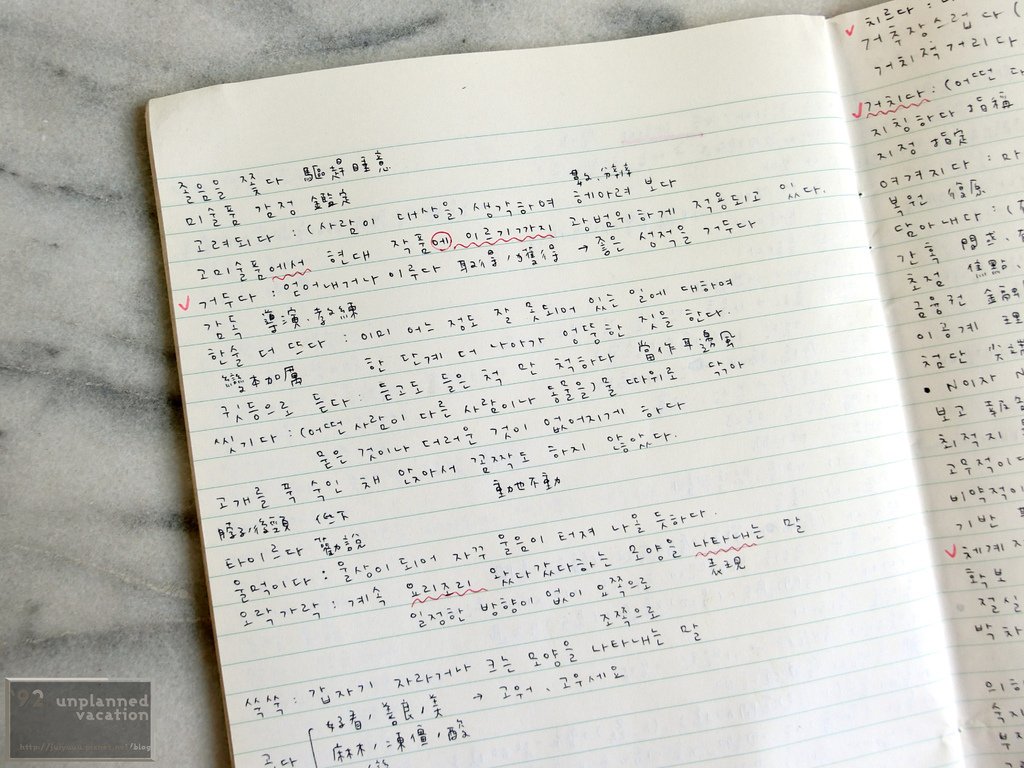 졸음을 쫓다 驅趕睡意
미술품 감정 鑑定
고려되다 : (사람이 대상을) 생각하여 헤아려 보다
고미술품에서 현대 작품에 이르기까지 광범위하게 적용되고 있다.
거두다 : 얻어내거나 이루다 取得, 獲得 → 좋은 성적을 거두다
감독 導演, 教練
한술 더 뜨다 : 이미 어느 정도 잘 못되어 있는 일에 대하여
變本加厲 한 단계 더 나아가 엉뚱한 짓을 한다.
귓등으로 듣다 : 듣고도 들은 척 만 척하다 當作耳邊風
씻기다 : (어떤 사람이 다른 사람이나 동물을) 물 따위로 닦아
묻은 것이나 더러운 것이 없어지게 하다
고개를 푹 숙인 채 앉아서 꼼짝도 하지 않았다.
低下
動也不動
타이르다 勸說
울먹이다 : 울상이 되어 자꾸 울음이 터져 나올 듯하다.
오락가락 : 계속 요리조리 왔다갔다하는 모양을 나타내는 말
일정한 방향이 없이 요쪽으로 表現
조쪽으로
쑥쑥 : 갑자기 자라거나 크는 모양을 나타내는 말
곱다 好看, 善良, 美 → 고워, 고우세요
麻木, 凍僵, 酸
치르다 :
거추장스럽다 (
거치적거리다
거치다 : (어떤
지칭하다 指稱
지정 指定
여겨지다 :
복원 復原
담아내다 : (
간혹 間或,
초점 焦點,
금융권 金融
이공계 理
첨단 尖端
• N이자 N
보고
최적지
고무적이다
비약적이
기반
체계
확보
절실
박차
의
숙지
부
92 unplanned
vacation
http://juiyuuu.pixnet.net/blog